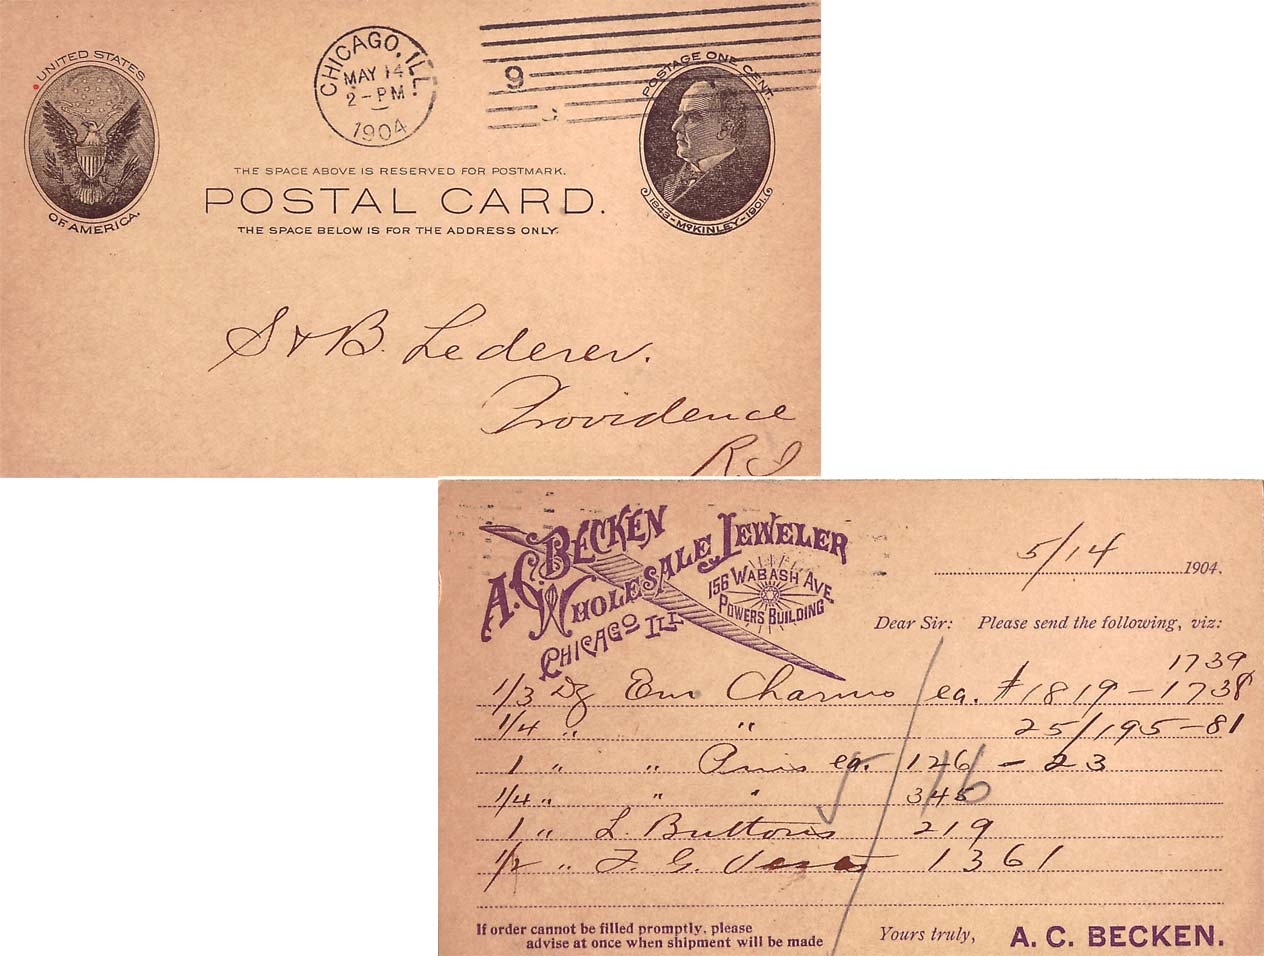 UNITED STATES
OF AMERICA.
CHICAGO, ILL.
MAY 14
2-PM
1904
9
POSTAGE ONE CENT.
1843-McKINLEY-1901.
THE SPACE ABOVE IS RESERVED FOR POSTMARK.
POSTAL CARD.
THE SPACE BELOW IS FOR THE ADDRESS ONLY.
S & B. Lederer.
Providence
R.I
A.C. BECKEN
WHOLESALE JEWELER
CHICAGO ILL
156 WABASH AVE.
POWERS BUILDING
5/14 1904.
Dear Sir: Please send the following, viz:
1739
1/3 Dz Em Charms ea. #1819-1738
1/4 " " 25/195-81
1 " " Pins ea. 126 - 23
1/4 " " " 345
1 " L. Buttons 219
1/2 " F. G. 1361
If order cannot be filled promptly, please
advise at once when shipment will be made
Yours truly, A. C. BECKEN.